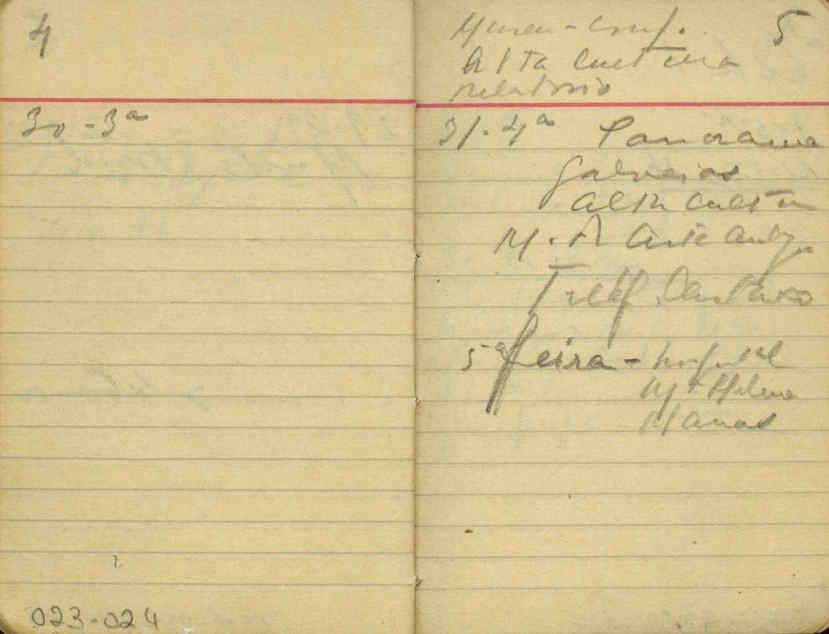 4
30-3ª
023-024
5
Museu - conf.
Alta Cultura
relatorio
31-4ª Panorama
Galveias
Alta Cultura
M. A. Arte Antg.
Telef.
5ª feira - hospital
Mª Helena
Manas